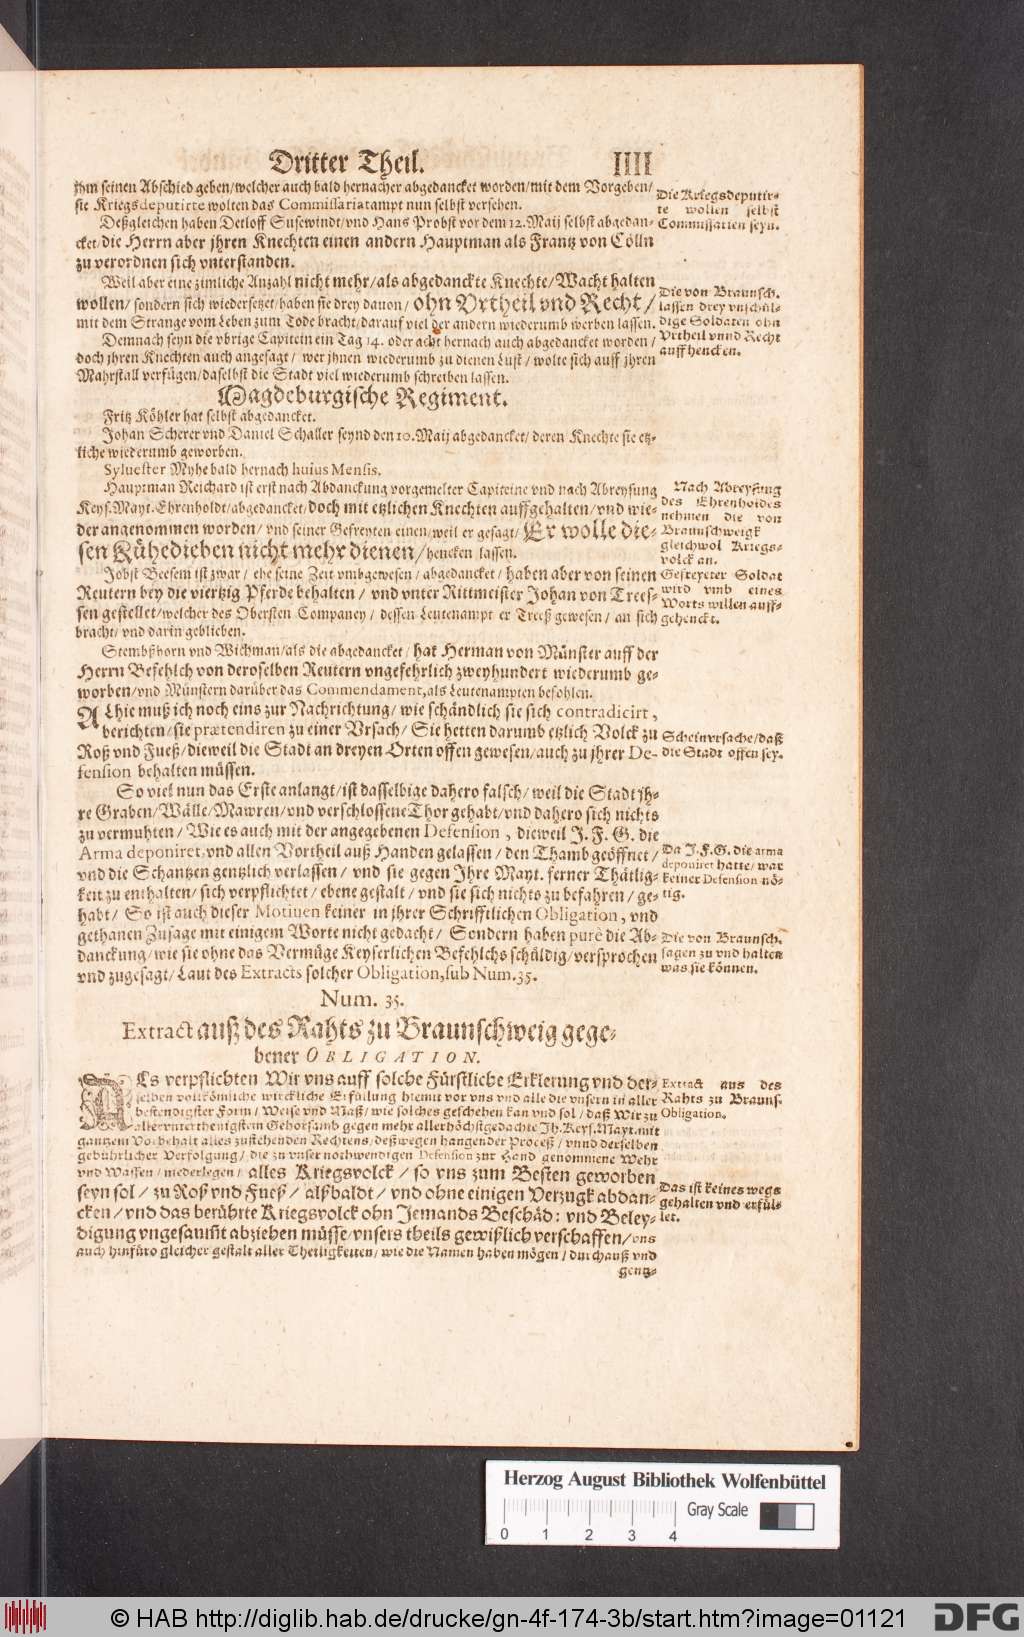 Dritter Theil. 1111
jhm seinen Abschied geben/welcher auch bald hernacher abgedancket worden/mit dem Vorgeben/
sie Kriegsdeputirte wolten das Commissariatampt nun selbst versehen.
Deßgleichen haben Detloff Susewindt/vnd Hans Probst vor dem 12. Maij selbst abgedan-
cket/die Herrn aber jhren Knechten einen andern Hauptman als Frantz von Cölln
zu verordnen sich vnterstanden.
Die Kriegsdeputir-
te wollen selbst
Commissarien seyn.
Weil aber eine zimliche Anzahl nicht mehr/als abgedanckte Knechte/Wacht halten
wollen/ sondern sich wiedersetzet/haben sie drey dauon/ ohn Vrtheil vnd Recht/
mit dem Strange vom Leben zum Tode bracht/darauf viel der andern wiederumb werben lassen.
Demnach seyn die vbrige Capitein ein Tag 14. oder acht hernach auch abgedancket worden/
doch jhren Knechten auch angesagt/ wer jhnen wiederumb zu dienen Lust/ wolte sich auff jhren
Mahrstall verfügen/daselbst die Stadt viel wiederumb schreiben lassen.
Die von Braunsch.
lassen drey vnschül-
dige Soldaten ohn
Vrtheil vnnd Recht
auffhencken.
Magdeburgische Regiment.
Fritz Köhler hat selbst abgedancket.
Johan Scherer vnd Daniel Schaller seynd den 10. Maij abgedancket/ deren Knechte sie etz-
liche wiederumb geworben.
Syluester Myhe bald hernach huius Mensis.
Hauptman Reichard ist erst nach Abdanckung vorgemelter Capiteine vnd nach Abreysung
Keys. Mayt. Ehrenholdt/abgedancket/doch mit etzlichen Knechten auffgehalten/vnd wie-
der angenommen worden/ vnd seiner Gefreyten einen/weil er gesagt/ Er wolle die-
sen Kühedieben nicht mehr dienen/hencken lassen.
Nach Abreysung
des Ehrenholdes
nehmen die von
Braunschweigk
gleichwol Kriegs-
volck an.
Jobst Beesem ist zwar/ ehe seine Zeit vmbgewesen/abgedancket/ haben aber von seinen
Reutern bey die viertzig Pferde behalten/ vnd vnter Rittmeister Johan von Trees-
sen gestellet/welcher des Obersten Companey/ dessen Leutenampt er Treeß gewesen/ an sich
bracht/vnd darin geblieben.
Gefreyeter Soldat
wird vmb eines
Worts willen auff-
gehenckt.
Stembßhorn vnd Wichman/als die abgedancket/ hat Herman von Münster auff der
Herrn Befehlch von deroselben Reutern vngefehrlich zweyhundert wiederumb ge-
worben/vnd Münstern darüber das Commendament, als Leutenampten befohlen.
Alhie muß ich noch eins zur Nachrichtung/ wie schändlich sie sich contradicirt,
berichten/sie prætendiren zu einer Vrsach/ Sie hetten darumb etzlich Volck zu
Roß vnd Fueß/dieweil die Stadt an dreyen Orten offen gewesen/auch zu jhrer De-
fension behalten müssen.
Scheinvrsache/daß
die Stadt offen sey.
So viel nun das Erste anlangt/ist dasselbige dahero falsch/ weil die Stadt jh-
re Graben/Wälle/Mawren/vnd verschlossene Thor gehabt/vnd dahero sich nichts
zu vermuhten/ Wie es auch mit der angegebenen Defension, dieweil J. F. G. die
Arma deponiret, vnd allen Vortheil auß Handen gelassen/ den Thamb geöffnet/
vnd die Schantzen gentzlich verlassen/ vnd sie gegen Jhre Mayt. ferner Thätlig-
keit zu enthalten/ sich verpflichtet/ ebene gestalt/ vnd sie sich nichts zu befahren/ ge-
habt/ So ist auch dieser Motiuen keiner in jhrer Schrifftlichen Obligation, vnd
gethanen Zusage mit einigem Worte nicht gedacht/ Sondern haben purè die Ab-
danckung/wie sie ohne das Vermüge Keyserlichen Befehlchs schüldig/versprochen
vnd zugesagt/ Laut des Extracts solcher Obligation, sub Num. 35.
Da J. F. G. die arma
deponiret hatte/ war
keiner Defension nö-
tig.
Die von Braunsch.
sagen zu vnd halten
was sie können.
Num. 35.
Extract auß des Rahts zu Braunschweig gege-
bener OBLIGATION.
Als verpflichten Wir vns auff solche Fürstliche Erklerung vnd der-
selben vollkömliche wirckliche Erfüllung hiemit vor vns vnd alle die vnsern in aller
bestendigster Form/ Weise vnd Maß/ wie solches geschehen kan vnd sol/ daß Wir zu
aller vnterthenigstem Gehorsamb gegen mehr allerhöchstgedachte Jh. Keys. Mayt. mit
gantzem Vorbehalt alles zustehenden Rechtens/ deßwegen hangender Proceß/ vnnd derselben
gebührlicher Verfolgung/ die zu vnser nothwendigen Defension zur Hand genommene Wehr
vnd Waffen/ niederlegen/ alles Kriegsvolck/ so vns zum Besten geworben
seyn sol/ zu Roß vnd Fueß/ alßbaldt/ vnd ohne einigen Verzugk abdan-
cken/ vnd das berührte Kriegsvolck ohn Jemands Beschäd: vnd Beley-
digung vngesaumt abziehen müsse/ vnsers theils gewißlich verschaffen/ vns
auch hinfüro gleicher gestalt aller Theiligkeiten/ wie die Namen haben mögen/ durchauß vnd
gentz-
Extract aus des
Rahts zu Brauns.
Obligation.
Das ist keines wegs
gehalten vnd erfül-
let.
Herzog August Bibliothek Wolfenbüttel
Gray Scale
0 1 2 3 4
© HAB http://diglib.hab.de/drucke/gn-4f-174-3b/start.htm?image=01121
DFG